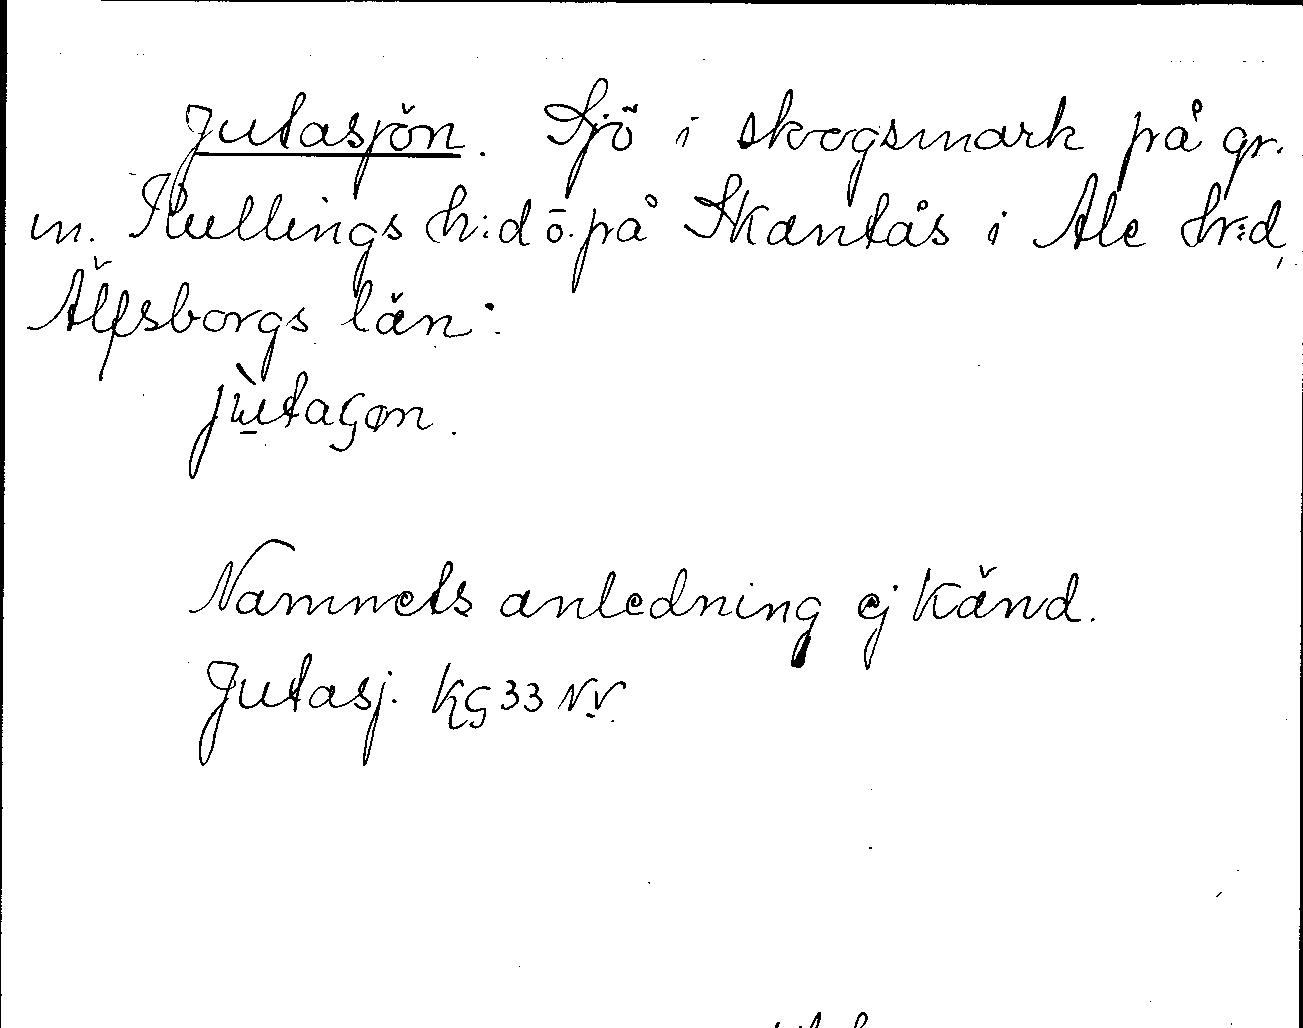 Jutasjön. Sjö i skogsmark på gr.
m. Kullings h:d o. på Skantås i Ale h:d,
Älfsborgs län:
jùtaʂøn.
Namnets anledning ej känd.
Jutasj. KG 33 NV.